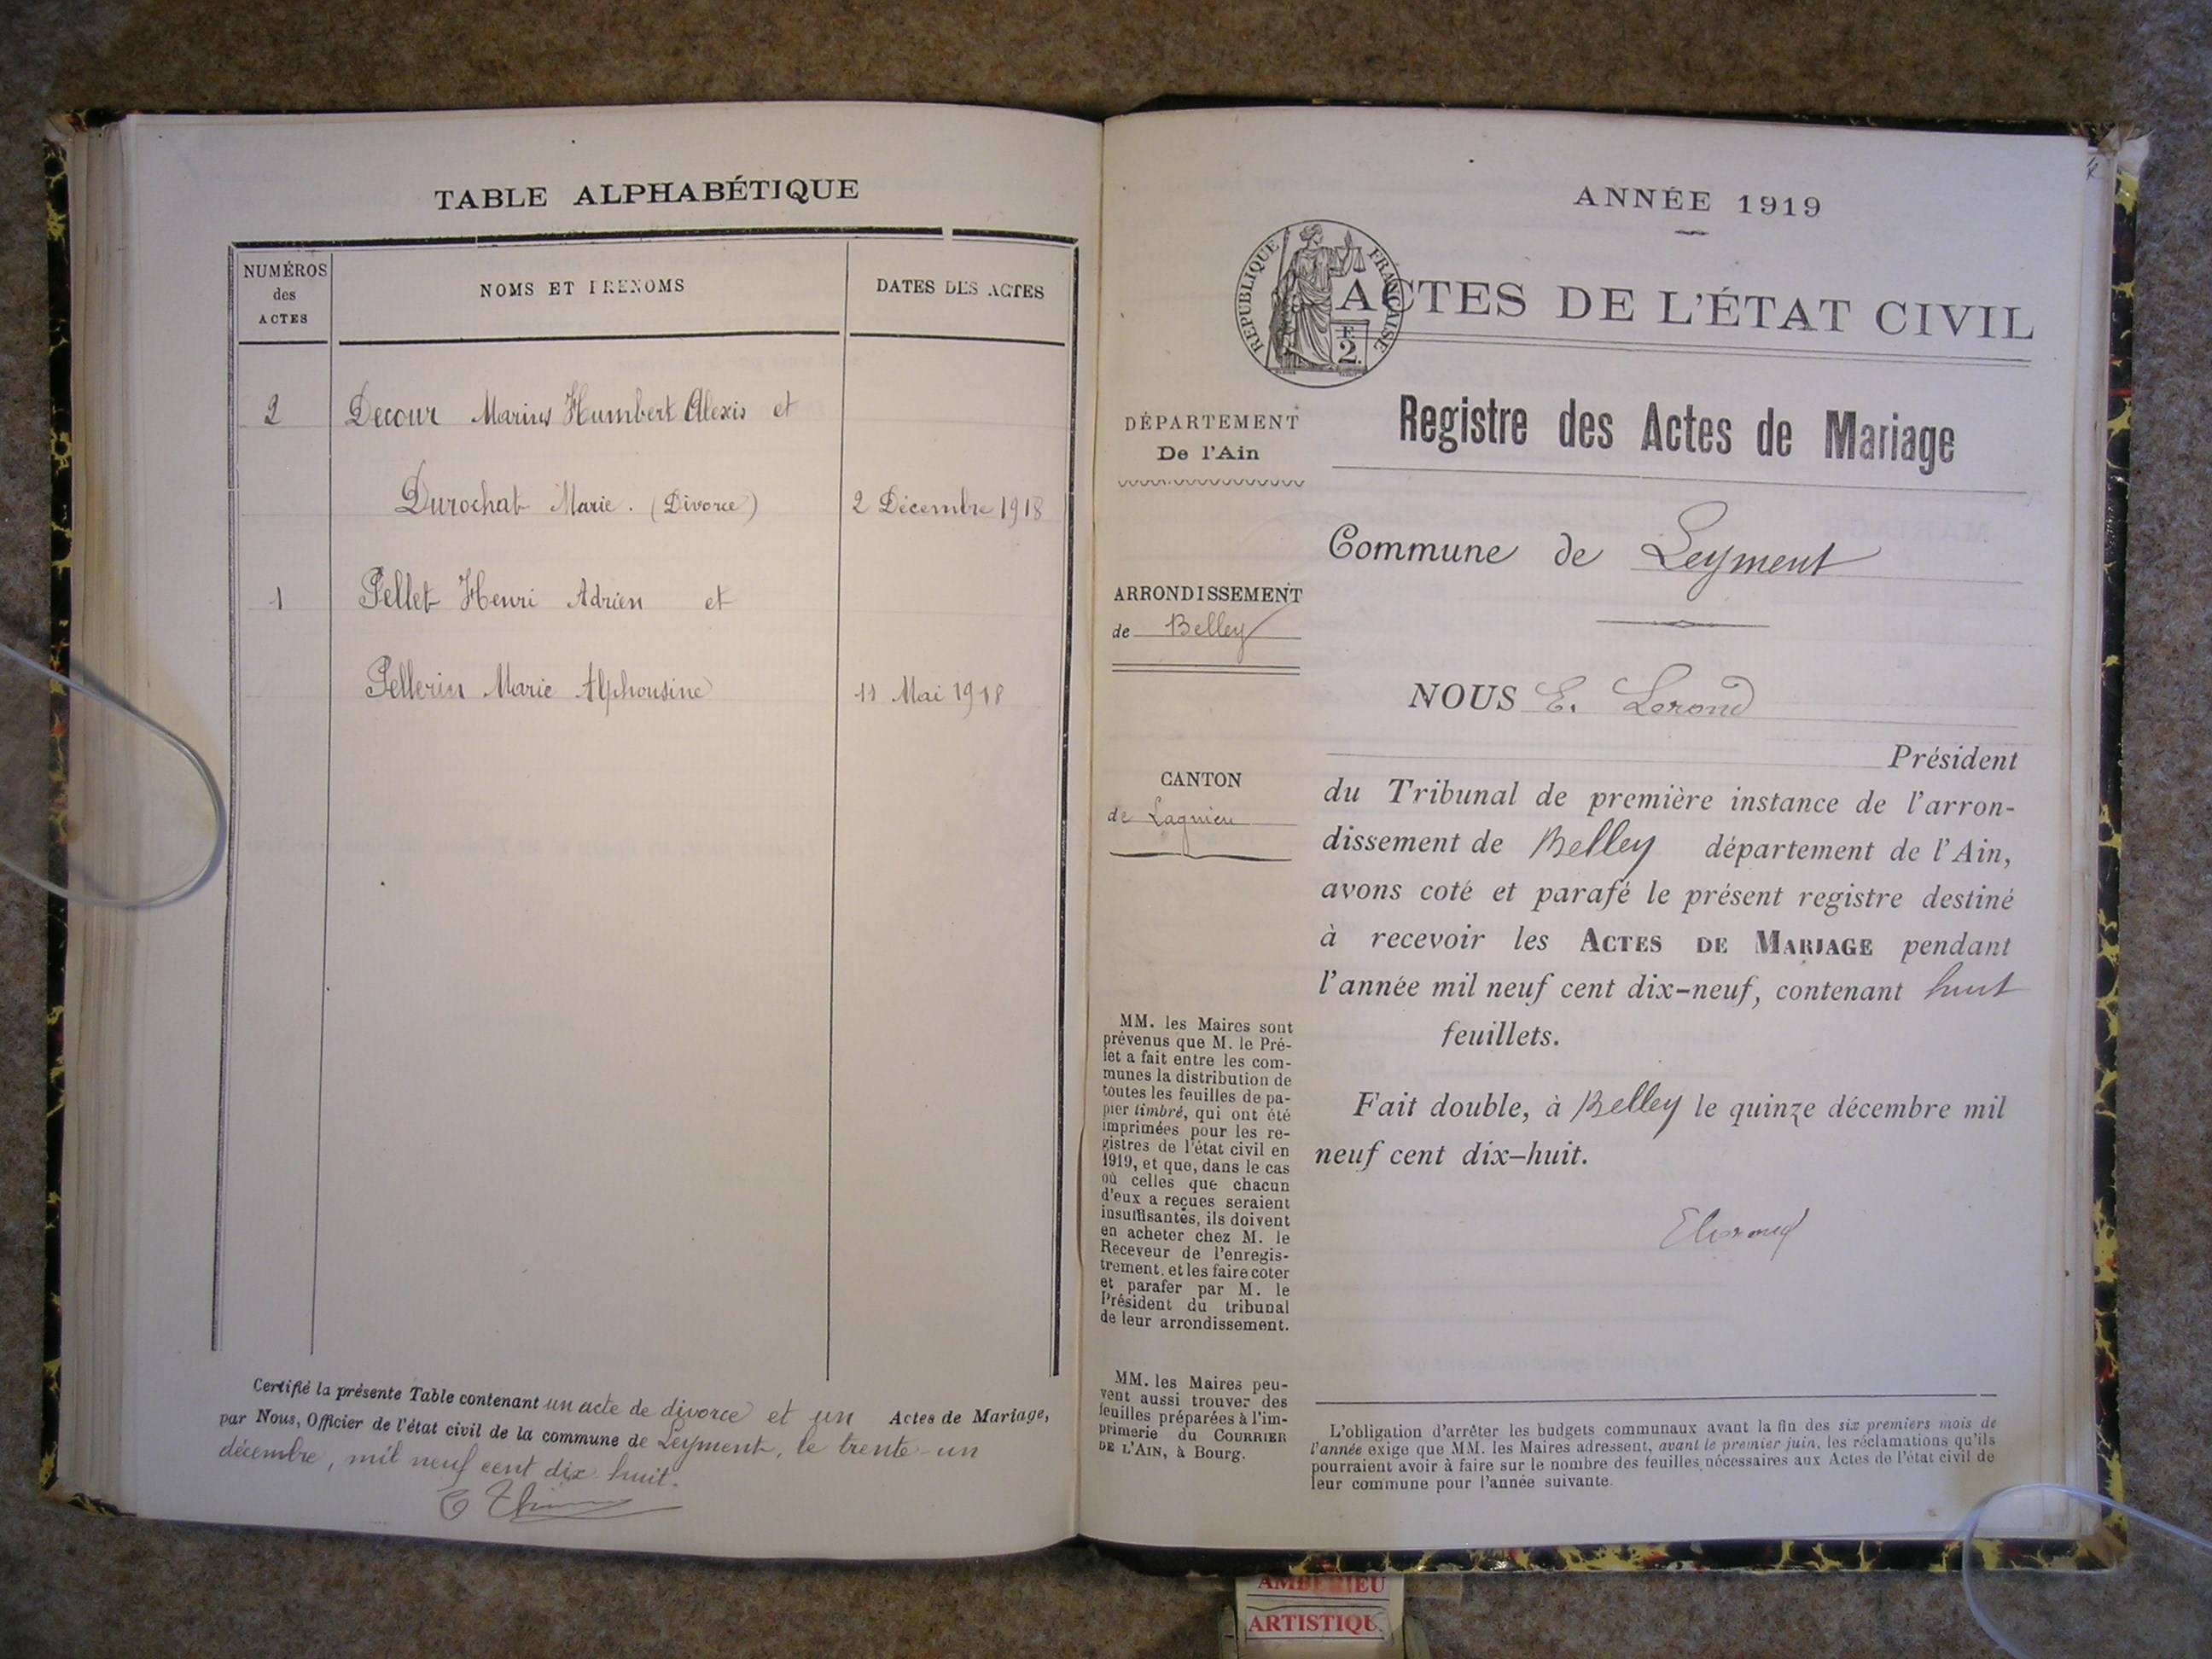 TABLE ALPHABÉTIQUE
NUMÉROS
des
ACTES
NOMS ET PRENOMS
DATES DES ACTES
2 Decour Marius Humbert Alexis et
Durochat Marie. (Divorce) 2 Décembre 1918
1 Pellet Henri Adrien et
Pellerin Marie Alphonsine 11 Mai 1918
Certifié la présente Table contenant un acte de divorce et un Actes de Mariage,
par Nous, Officier de l'état civil de la commune de Leyment, le trente-un
décembre, mil neuf cent dix huit.
ANNÉE 1919
RÉPUBLIQUE FRANÇAISE
F.
2.
ACTES DE L'ÉTAT CIVIL
Registre des Actes de Mariage
DÉPARTEMENT
De l'Ain
Commune de Leyment
ARRONDISSEMENT
de Belley
NOUS E. Lorond
Président
CANTON
de Lagnieu
du Tribunal de première instance de l'arron-
dissement de Belley département de l'Ain,
avons coté et parafé le présent registre destiné
à recevoir les ACTES DE MARIAGE pendant
l'année mil neuf cent dix-neuf, contenant huit
feuillets.
Fait double, à Belley le quinze décembre mil
neuf cent dix-huit.
MM. les Maires sont
prévenus que M. le Pré-
fet a fait entre les com-
munes la distribution de
toutes les feuilles de pa-
pier timbré, qui ont été
imprimées pour les re-
gistres de l'état civil en
1919, et que, dans le cas
où celles que chacun
d'eux a reçues seraient
insuffisantes, ils doivent
en acheter chez M. le
Receveur de l'enregis-
trement, et les faire coter
et parafer par M. le
Président du tribunal
de leur arrondissement.
MM. les Maires peu-
vent aussi trouver des
feuilles préparées à l'im-
primerie du COURRIER
DE L'AIN, à Bourg.
L'obligation d'arrêter les budgets communaux avant la fin des six premiers mois de
l'année exige que MM. les Maires adressent, avant le premier juin, les réclamations qu'ils
pourraient avoir à faire sur le nombre des feuilles nécessaires aux Actes de l'état civil de
leur commune pour l'année suivante.
AMBERIEU
ARTISTIQU